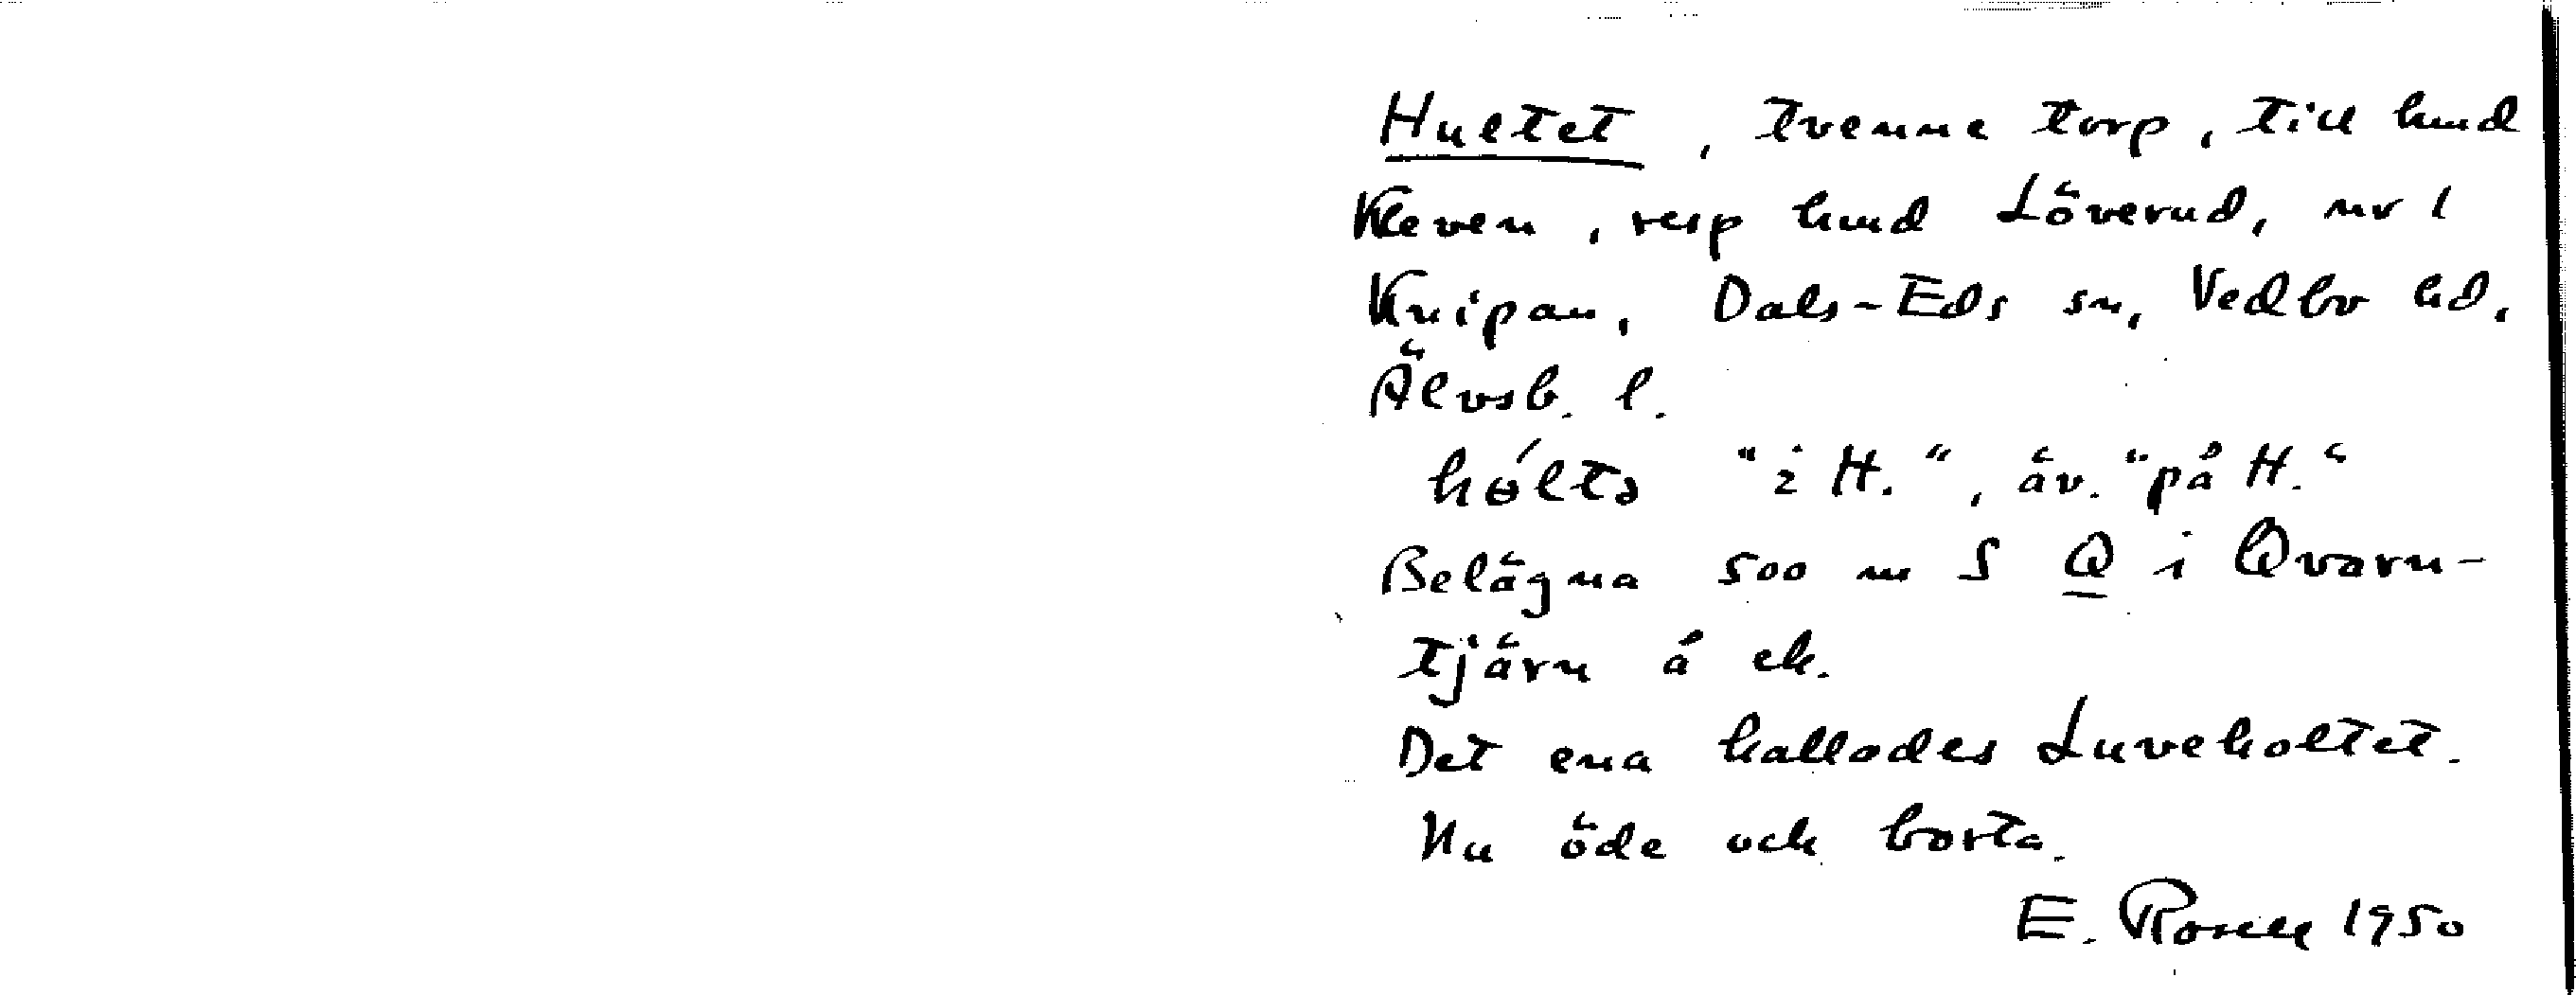 Hultet, tvenne torp, till hmd
Kleven, resp hmd Löverud, nr 1
Knipan, Dals-Eds sn, Vedbo hd,
Älvsb. l.
hóltə "i H.", äv. "på H."
Belägna 500 m S Q i Qvarn-
tjärn å ek.
Det ena kallades Luveholtet.
Nu öde och borta.
E. Rosell 1950